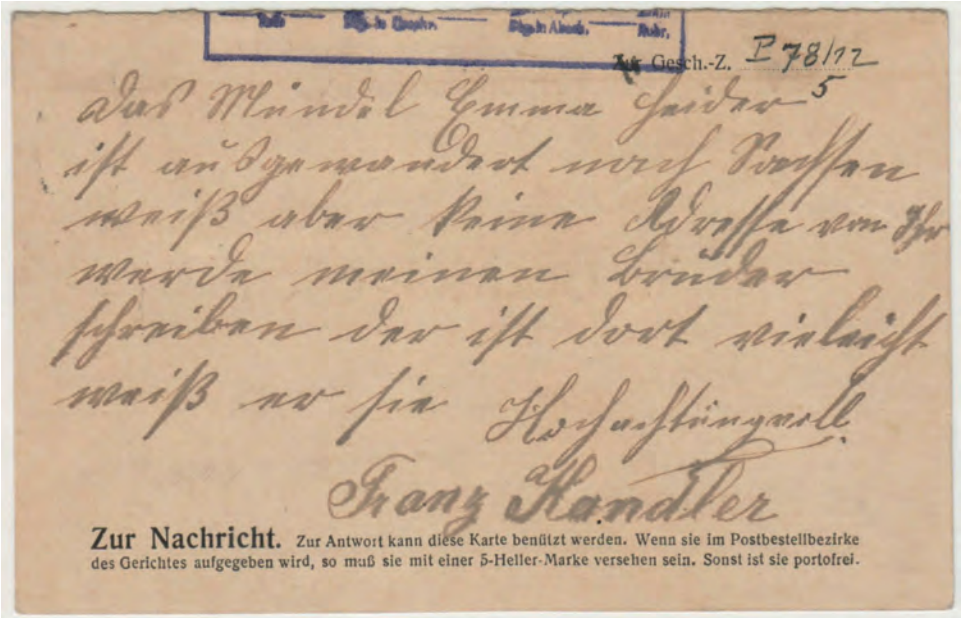 Zur Gesch.-Z. P 78/12
5
Das Mündel Emma Heider
ist ausgewandert nach Sachsen
weiß aber keine Adresse von Ihr
werde meinen Bruder
schreiben der ist dort vieleicht
weiß er sie Hochachtungvoll
Franz Handler
Zur Nachricht. Zur Antwort kann diese Karte benützt werden. Wenn sie im Postbestellbezirke
des Gerichtes aufgegeben wird, so muß sie mit einer 5-Heller-Marke versehen sein. Sonst ist sie portofrei.